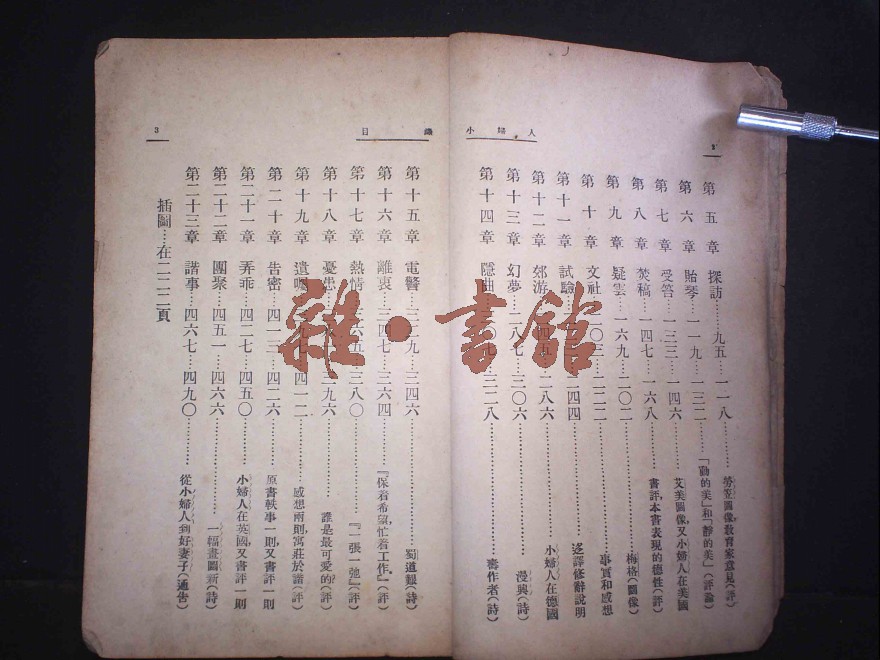 小婦人
第五章 探訪……九五…一一八……………勞笠圖像，教育家意見(評)
第六章 貽琴……一一九…一三二……「動的美」和「靜的美」(評論)
第七章 受窘……一三三…一四六……………艾美圖像，又小婦人在美國
第八章 焚稿……一四七…一六八……………書評，本書表現的德性(評)
第九章 疑雲……一六九…二〇二……………梅格(圖像)
第十章 文社……二〇三…二二二……………事實和感想
第十一章 試驗……二四四……………迻譯修辭說明
第十二章 郊游……二八六……………小婦人在德國
第十三章 幻夢……二八七…三〇六……………漫興(詩)
第十四章 隱曲……三〇九…三二八……………壽作者(詩)
目錄
3
第十五章 電警……三二九…三四六……………蜀道難(詩)
第十六章 離衷……三四七…三六四……『保着希望，忙着工作』(評)
第十七章 熱情……三六五…三八〇……………『一張一弛』(評)
第十八章 憂患……三九六……………誰是最可愛的？(評)
第十九章 遺囑……三九七…四一二……………感想兩則，寓莊於諧(評)
第二十章 告密……四一三…四二六……………原書軼事一則，又書評一則
第二十一章 弄乖……四二七…四五〇……………小婦人在英國，又書評一則
第二十二章 團聚……四五一…四六六……………一幅畫圖新(詩)
第二十三章 諧事……四六七…四九〇……………從小婦人到好妻子(通告)
插圖……在二二二頁
雜·書館